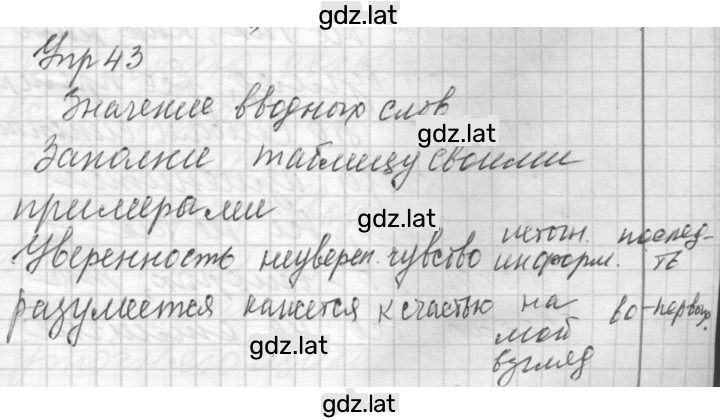 gdz.lat
Упр 43
Значение вводных слов
gdz.lat
Заполни таблицу своими
примерами
gdz.lat
Уверенность неуверен. чувство источн. информ. послед-ть
разумеется кажется к счастью на мой взгляд во-первых.
gdz.lat
gdz.lat